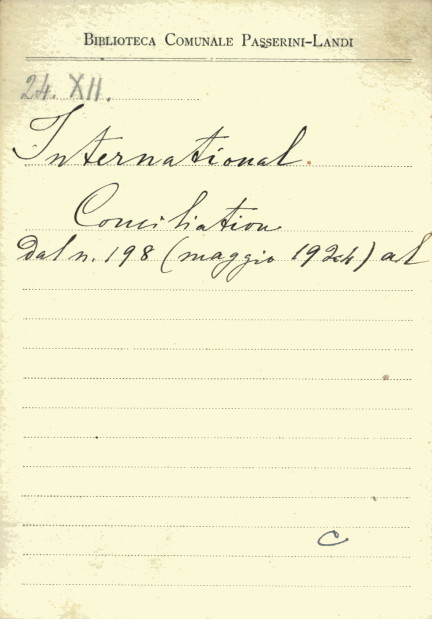 BIBLIOTECA COMUNALE PASSERINI-LANDI
24. XII.
International
Conciliation
dal n. 198 (maggio 1924) al
C